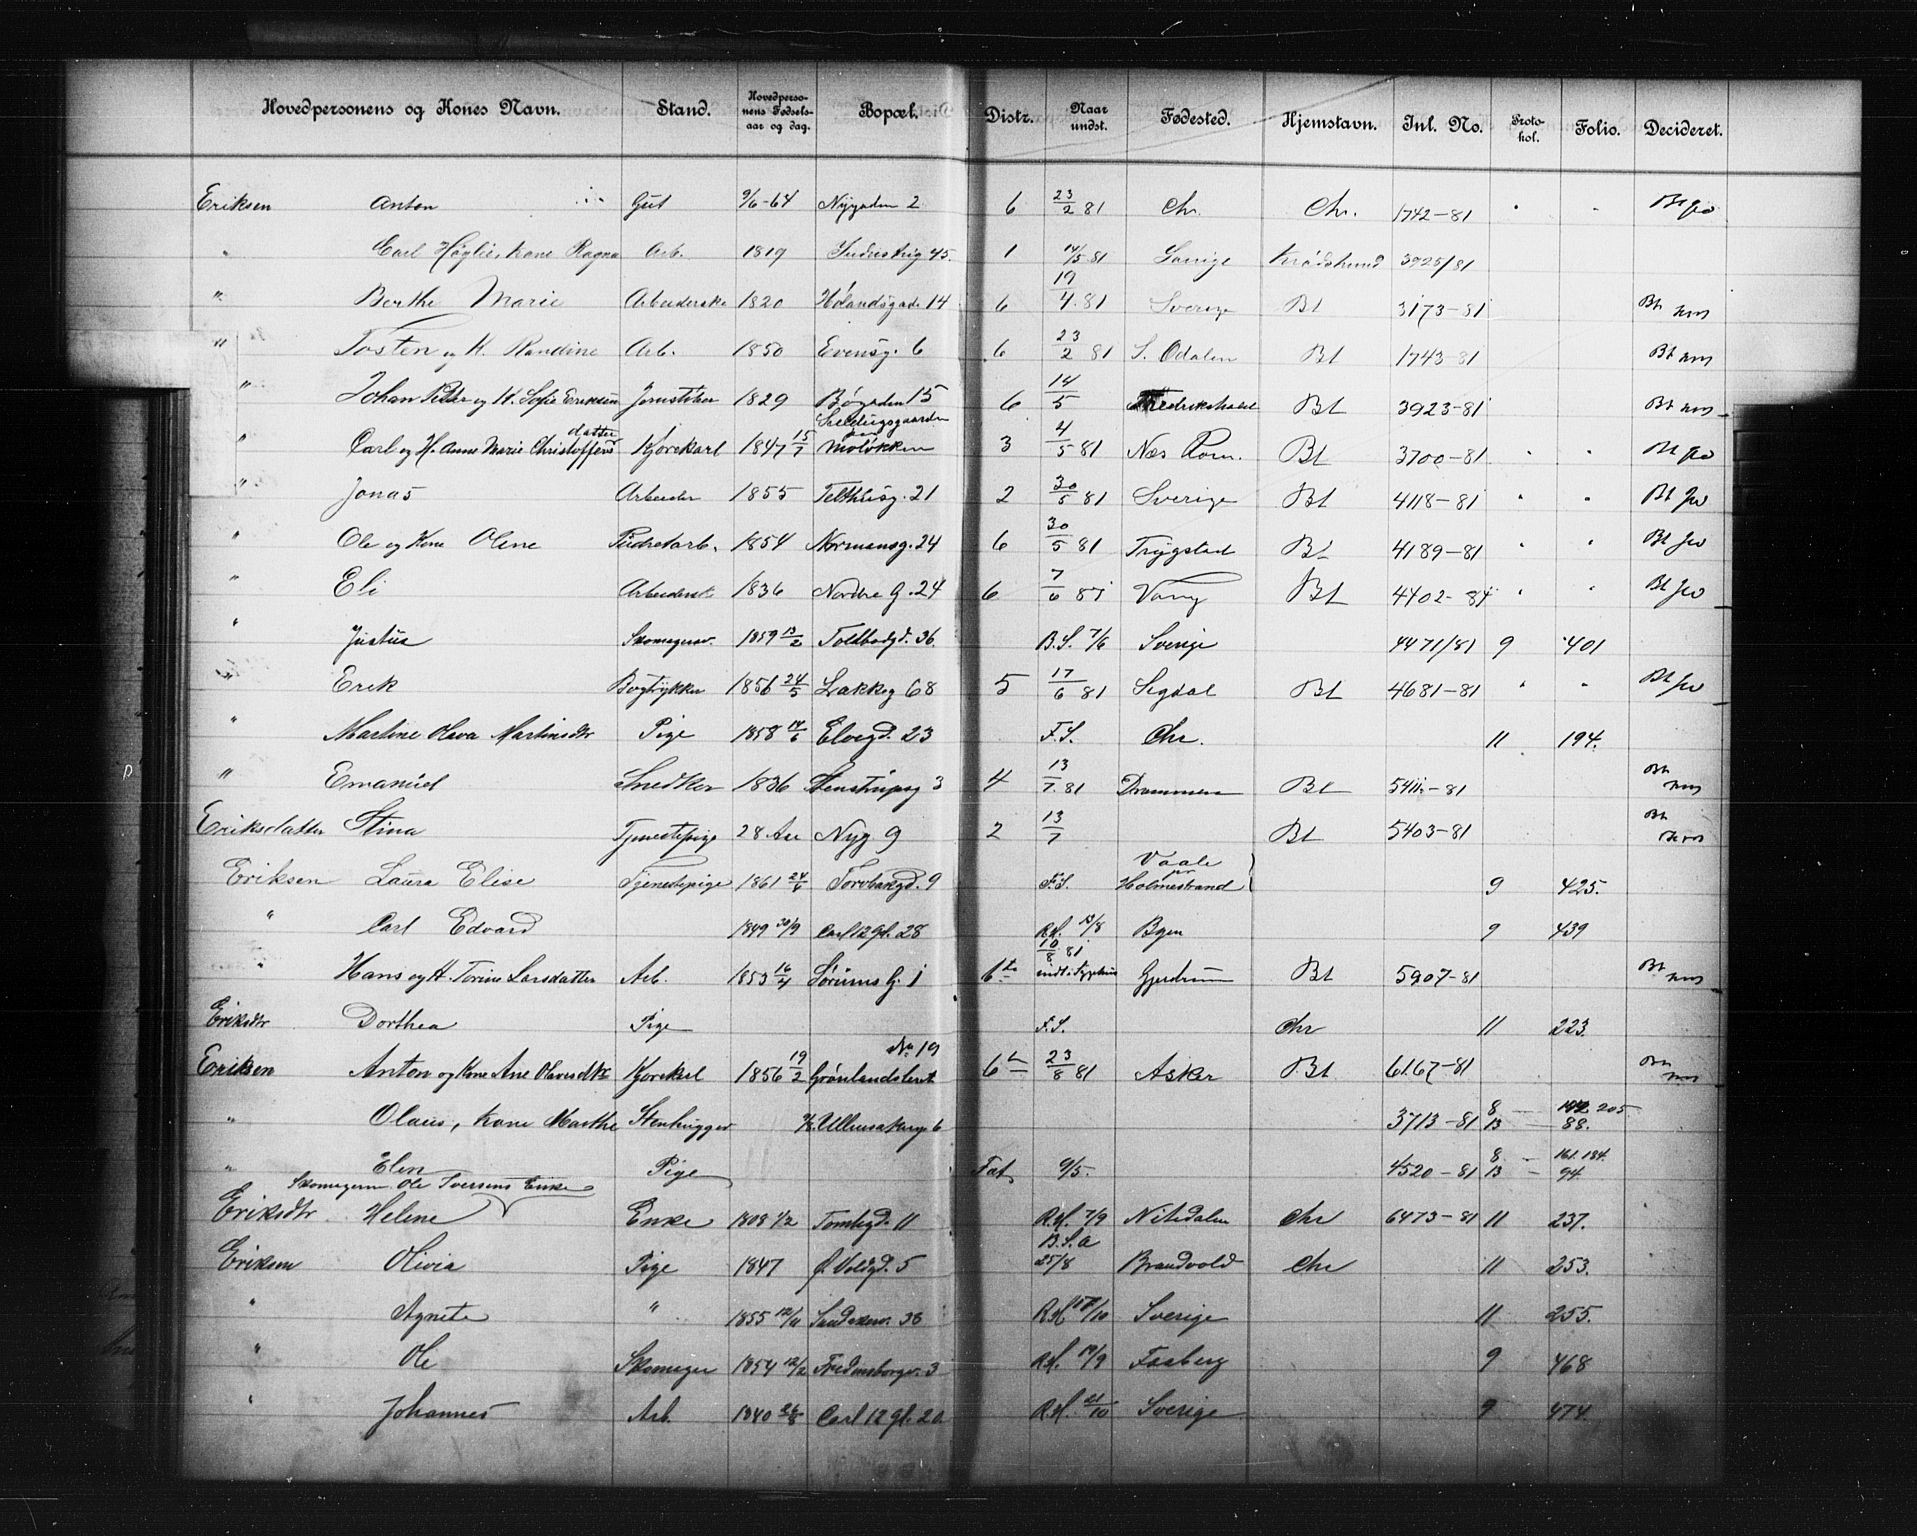 Hovedpersonens og Kones Navn. Stand. Hovedpersonens Fødselsaar og dag. Bopæl. Distr. Naar undst. Fødested. Hjemstavn. Inl. No. Protokol. Folio. Decideret.
Eriksen Anton Gut 9/6-64 Nygaden 2 6 23/2 81 Chr. Chr. 1742-81 " "
" Carl Høglie, kone Ragna Arb. 1819 45. 1 14/5 81 Sverige Krødshered 3925/81
" Berthe Marie Arbeiderske 1820 Hølandsgade 14 6 19/4.81 Sverige Bt 3173-81 Bt
" Tosten og H. Randine Arb. 1850 Evensg. 6 6 23/2 81 S. Odalen Bt 1743-81 Bt
" Johan Peter og H. Sofie Eriksen Jernstøber 1829 Bøgaden 15 6 14/5 Fredrikshald Bt 3923-81 Bt
" Carl og H. Anne Marie Christoffersdatter Kjørekarl 1847 15/7 3 4/5 81 Næs Rom. Bt 3700-81 " "
" Jonas Arbeider 1855 Telthusg. 21 2 30/5 81 Sverige Bt 4118-81 " " Bt
" Ole og Kone Oline Pudretarb. 1854 Normansg. 24 6 30/5 81 Trygstad Bt 4189-81 " " Bt
" Eli Arbeidersk 1836 Nordre G. 24 6 7/6 81 Vang Bt 4402-81 " " Bt
" Justus Skomagersv. 1859 13/2 Toldbodgd. 36. B.S. 7/6 Sverige 4471/81 9 401
" Erik Bogtrykker 1856 24/5 Lakkeg 68 5 17/6 81 Sigdal Bt 4681-81 " " Bt
" Martine Olava Martinsdtr Pige 1858 14/6 Elvegd. 23 F.S. Chr. 11 194.
" Emanuel Snedker 1836 Stenstrupsg 3 4 13/7.81 Drammen Bt 5411-81 Bt
Eriksdatter Stina Tjenestepige 28 Aar Nyg 9 2 13/7 Bt 5403-81 Bt
Eriksen Laura Elise Tjenestepige 1861 24/6 Torvbakgd. 9 F.S. Vaale pr Holmestrand 9 425.
" Carl Edvard 1849 30/9 Carl 12 gd. 28 R.H. 13/8 Byen 9 439
" Hans og H. Torine Larsdatter Arb. 1853 16/4 Sørums G. 1 6te 10/8 81 indl. i Typhus Gjerdrum Bt 5907-81 Bt
Eriksdtr Dorthea Pige F.S. Chr 11 223.
Eriksen Anton og Kone Ane Olavesdtr Kjørekarl 1856 19/2 Grønlandsleret No 19 6te 23/8 81 Asker Bt 6167-81
" Olaus, kone Marthe Stenhugger Ullensakerg 6 3713-81 8 - 13 - 205 88.
" Elen Pige Fat. 9/5. 4520-81 8 - 13 - 161. 184. 94.
Skomagerm. Ole Iversens Enke
Eriksdtr Helene Enke 1808 1/2 Tomtegd. 11 R.H. 7/9 Nitedalen Chr 6473-81 11 237.
Eriksen Olivia Pige 1847 Ø. Voldgd. 5 B.S.a 25/8 Brandvold Chr 11 253.
" Agnete " 1855 12/11 36 R.H. 17/10 Sverige 11 255.
" Ole Skomager 1854 12/2 Fredensborgv. 3 R.H. 19/9 Faaberg 9 468
" Johannes Arb. 1840 26/8 Carl 12 gd. 20. R.H. 21/10 Sverige 9 474.